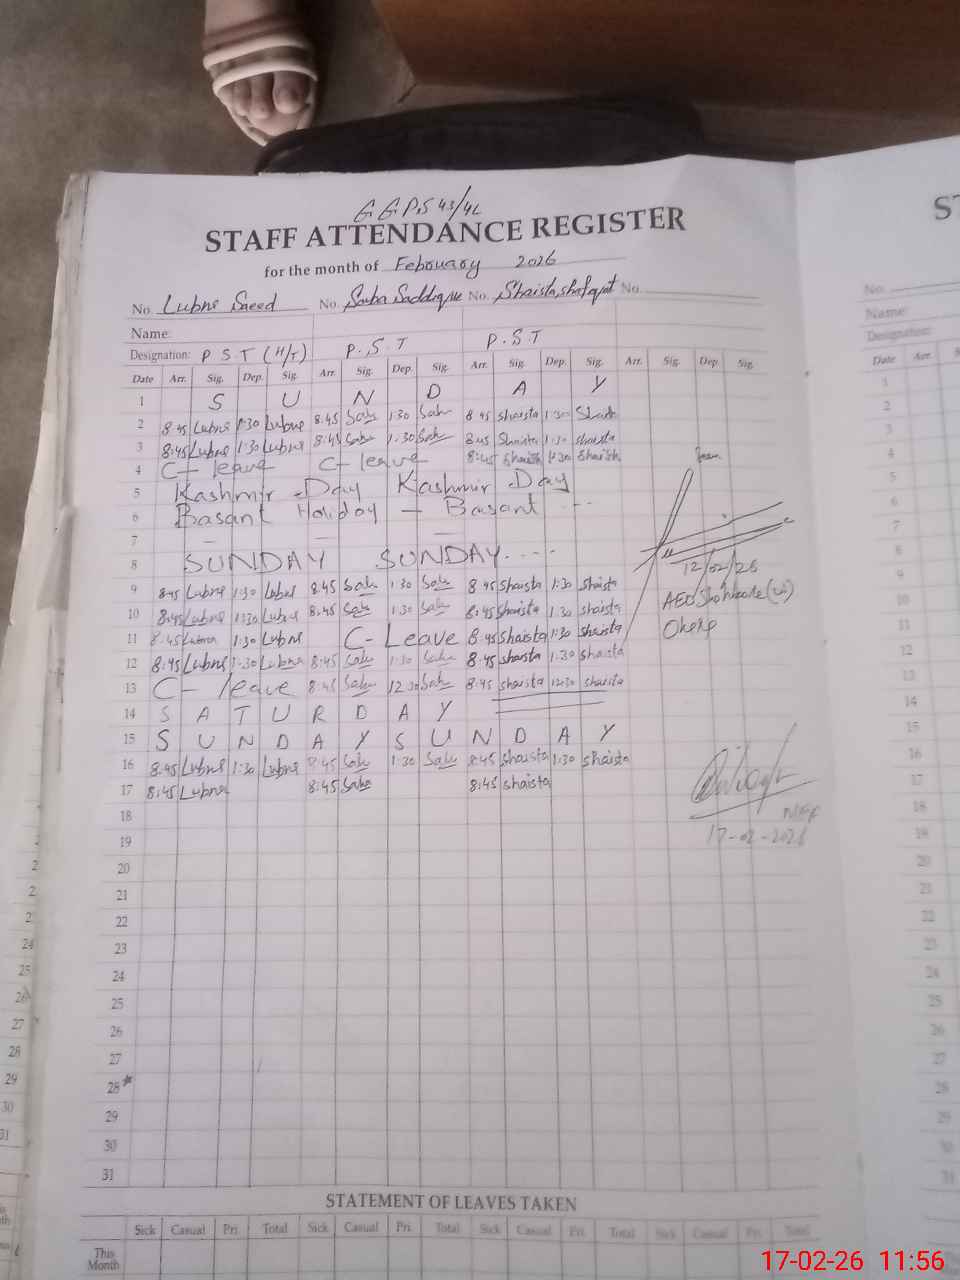 G.G.P.S 43/4L
STAFF ATTENDANCE REGISTER
for the month of February 2026
No. Lubna Saeed No. Saba Saddique No. Shaista shafqat No.
Name:
Designation: P S T (H/T) P.S T P.S T
Date Arr. Sig. Dep. Sig. Arr. Sig. Dep. Sig. Arr. Sig. Dep. Sig. Arr. Sig. Dep. Sig.
1 S U N D A Y
2 8:45 Lubna 1:30 Lubna 8:45 Sab 1:30 Sab 8:45 shaista 1:30 Shaista
3 8:45 Lubna 1:30 Lubna 8:45 Sab 1:30 Sab 8:45 Shaista 1:30 shaista
4 C- leave C- leave 8:45 Shaista 1:30 Shaista
5 Kashmir Day Kashmir Day
6 Basant Holiday - Basant ---
7 - - -
8 SUNDAY SUNDAY ----
9 8:45 Lubna 1:30 Lubna 8:45 Sab 1:30 Sab 8:45 Shaista 1:30 Shaista
12/02/26
10 8:45 Lubna 1:30 Lubna 8:45 Sab 1:30 Sab 8:45 shaista 1:30 shaista
AEO
11 8:45 Lubna 1:30 Lubna C- Leave 8:45 shaista 1:30 shaista
12 8:45 Lubna 1:30 Lubna 8:45 Sab 1:30 Sab 8:45 shaista 1:30 shaista
13 C- leave 8:45 Sab 12:30 Sab 8:45 shaista 12:30 shaista
14 S A T U R D A Y
15 S U N D A Y S U N D A Y
16 8:45 Lubna 1:30 Lubna 8:45 Sab 1:30 Sab 8:45 shaista 1:30 shaista
17 8:45 Lubna 8:45 Saba 8:45 shaista
18
17-02-2026
19
20
21
22
23
24
25
26
27
28*
29
30
31
STATEMENT OF LEAVES TAKEN
Sick Casual Pri. Total Sick Casual Pri. Total Sick Casual Pri. Total Sick Casual Pri. Total
This Month
No.
Name:
Designation:
Date Arr.
1
2
3
4
5
6
7
8
9
10
11
12
13
14
15
16
17
18
19
20
21
22
23
24
25
26
27
28
29
30
31
17-02-26 11:56